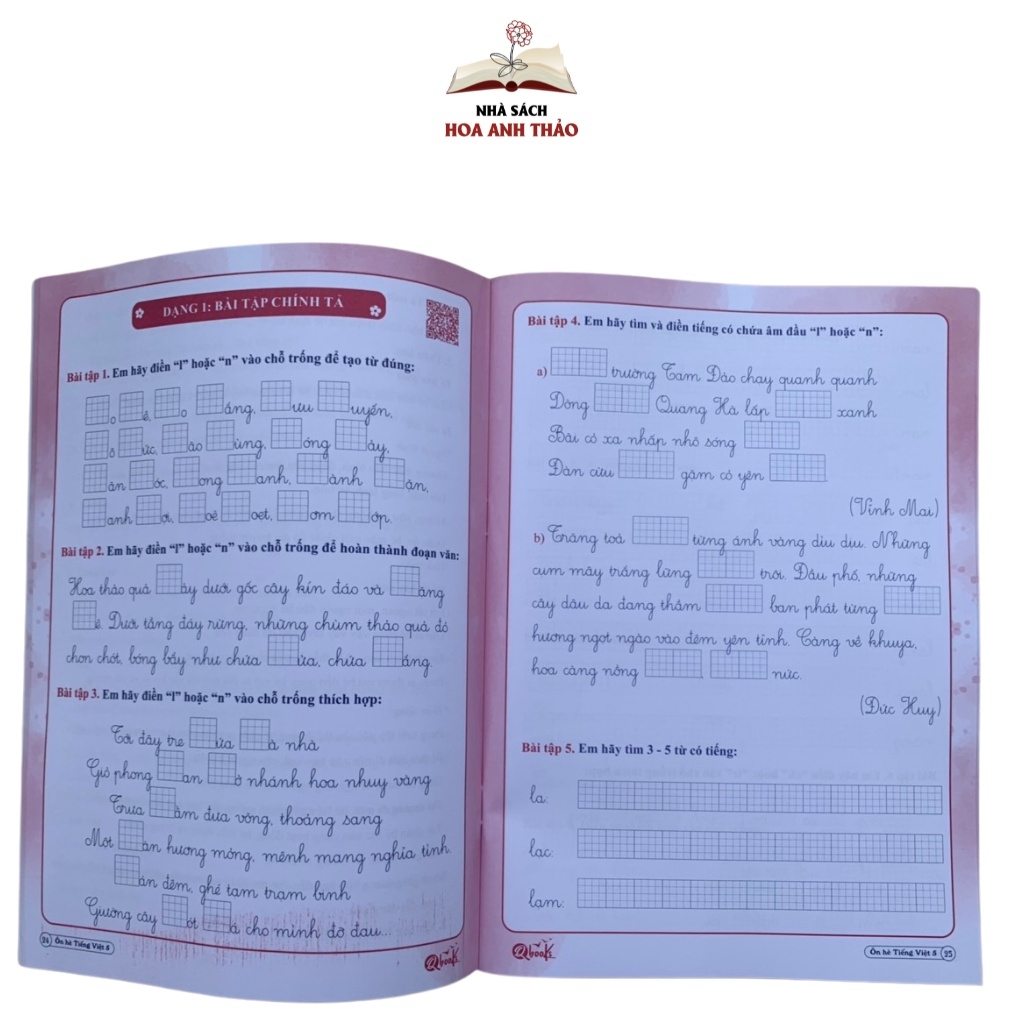 NHÀ SÁCH
HOA ANH THẢO
DẠNG 1: BÀI TẬP CHÍNH TẢ
Bài tập 1. Em hãy điền “l” hoặc “n” vào chỗ trống để tạo từ đúng:
o ê, o ắng, ưu uyến,
ô ức, ào ùng, óng ảy,
ăn óc, ong anh, ành ặn,
anh ợi, oè oẹt, ơm ớp.
Bài tập 2. Em hãy điền “l” hoặc “n” vào chỗ trống để hoàn thành đoạn văn:
Hoa thảo quả ảy dưới gốc cây kín đáo và ặng
ẽ. Dưới tầng đáy rừng, những chùm thảo quả đỏ
chon chót, bóng bẩy như chứa ửa, chứa ắng.
Bài tập 3. Em hãy điền “l” hoặc “n” vào chỗ trống thích hợp:
Tới đây tre ứa à nhà
Giỏ phong an ở nhánh hoa nhuỵ vàng
Trưa ằm đưa võng, thoảng sang
Một àn hương mỏng, mênh mang nghĩa tình.
án đêm, ghé tạm trạm binh
Giường cây ót á cho mình đỡ đau...
24 Ôn hè Tiếng Việt 5
Qbook
Bài tập 4. Em hãy tìm và điền tiếng có chứa âm đầu “l” hoặc “n”:
a) trường Tam Đảo chạy quanh quanh
Dòng Quang Hà lấp xanh
Bãi cỏ xa nhấp nhô sóng
Đàn cừu gặm cỏ yên
(Vĩnh Mai)
b) Trăng toả từng ánh vàng dìu dịu. Những
cụm mây trắng lững trôi. Đầu phố, những
cây dâu da đang thầm ban phát từng
hương ngọt ngào vào đêm yên tĩnh. Càng về khuya,
hoa càng nồng nức.
(Đức Huy)
Bài tập 5. Em hãy tìm 3 - 5 từ có tiếng:
la:
lạc:
lam:
Qbook
Ôn hè Tiếng Việt 5 25